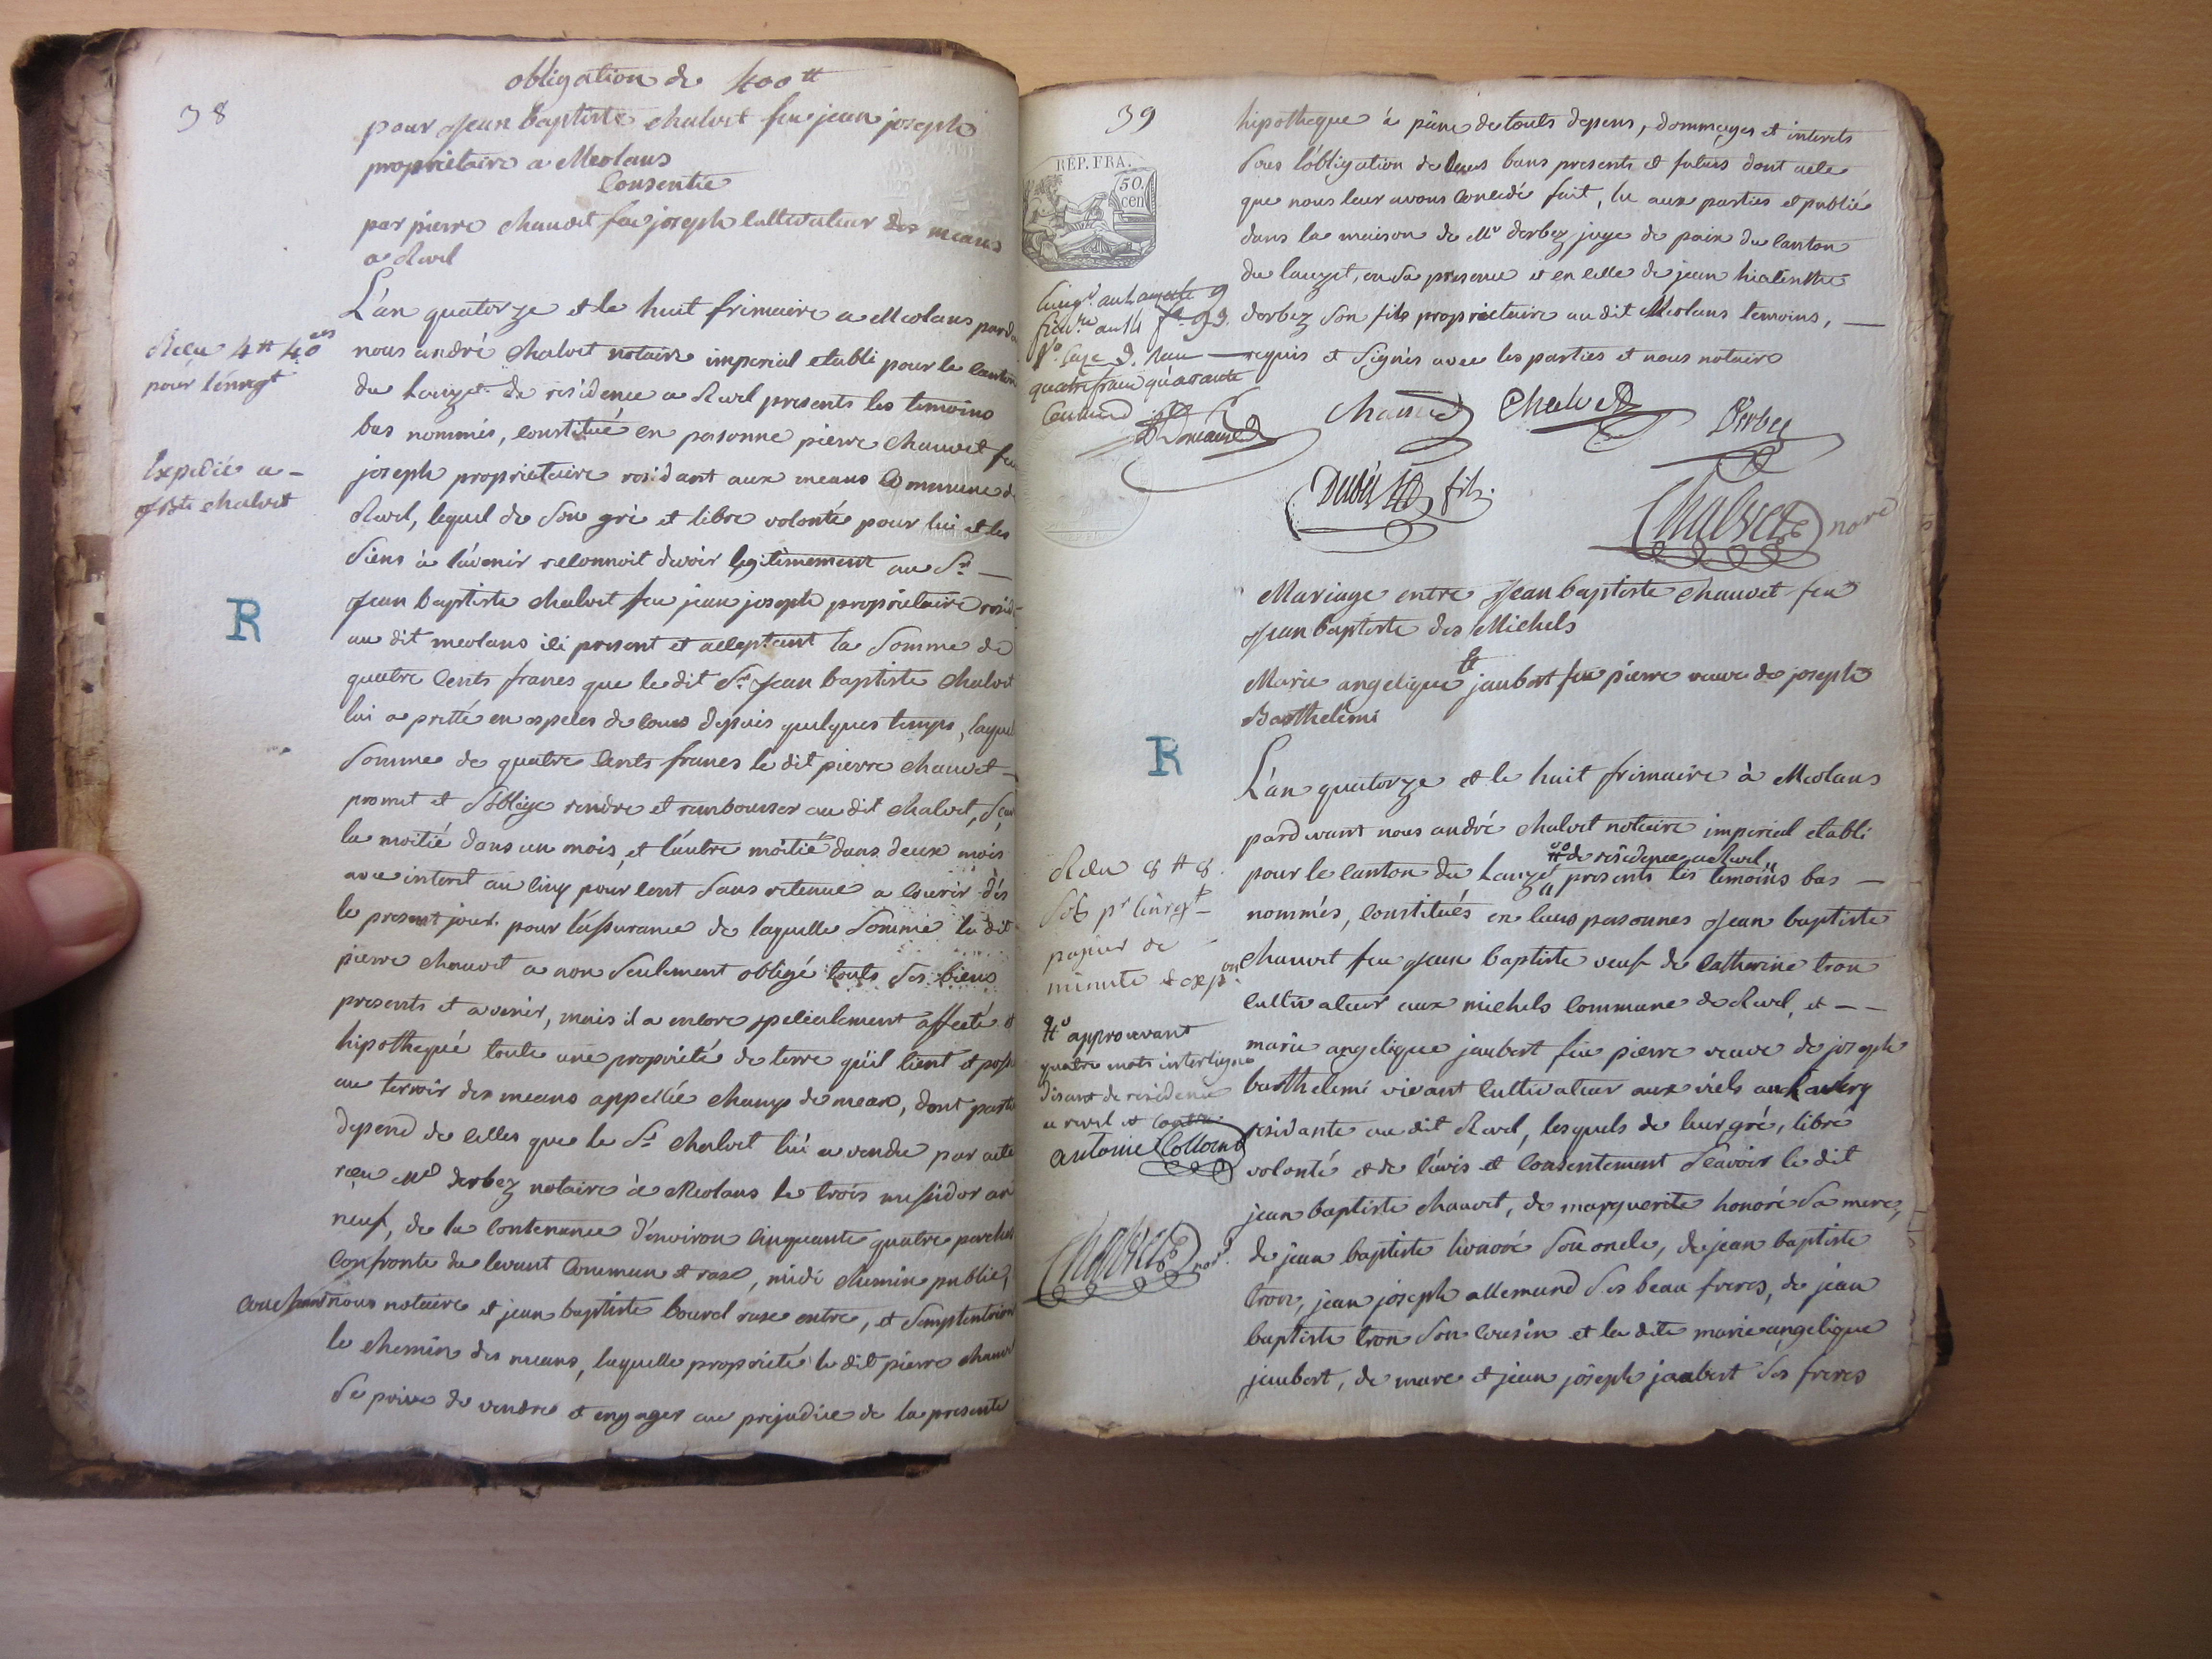 38
obligation de 400 tt
pour Jean baptiste chalvet feu jean joseph
propriétaire a Meolans
Consentie
par pierre chauvet feu joseph cultivateur des means
a Revel
L'an quatorze et le huit frimaire a Meolans pard
nous andré chalvet notaire imperial etabli pour le canton
du Lauzet de residence a Revel presents les temoins
bas nommés, constitué en personne pierre chauvet feu
joseph proprietaire residant aux means Commune de
Revel, lequel de son gré et libre volonté pour lui et les
siens à l'avenir reconnoit devoir legitimement au Sr
Jean baptiste chalvet feu jean joseph proprietaire resid
au dit meolans ici present et acceptant la somme de
quatre cents francs que le dit Sr Jean baptiste chalvet
lui a pretté en especes de cours depuis quelques temps, laquel
somme de quatre cents francs le dit pierre chauvet
promet et s'oblige rendre et rembourser au dit chalvet, sça
la moitié dans un mois, et l'autre moitié dans deux mois
avec interet au cinq pour cent sans retenue a courir dès
le present jour. pour l'assurance de laquelle somme le dit
pierre chauvet a non seulement obligé touts ses biens
presents et avenir, mais il a encore specialement affecté et
hipothequé toute une propriété de terre qu'il tient et poss
au terroir des means appellée champ de mean, dont partie
depend de celles que le Sr chalvet lui a vendu par acte
recu Me derbez notaire à Meolans le trois messidor an
neuf, de la contenance d'environ cinquante quatre perches
Confronte du levant Commun et rase, midi chemin public,
couchant nous notaire et jean baptiste bourel rase entre, et semptentrion
le chemin des means, laquelle propriété le dit pierre chauvet
se prive de vendre et engager au prejudice de la presente
Recu 4 tt 40 ces
pour l'enregt
Expedié a
J Bte chalvet
R
39
RÉP. FRA.
50.
cen
hipotheque à peine de touts depens, dommages et interets
sous l'obligation de leurs biens presents et futurs dont acte
que nous leur avons concedé fait, lu aux parties et publié
dans la maison de Me derbez juge de paix du canton
du lauzet, en sa presence et en celle de jean hiacinthe
derbez son fils proprietaire au dit Meolans temoins,
requis et signés avec les parties et nous notaire
quatre francs quarante
Chauvet Chalvet Derbez
Derbez fils
Chalvet nore
Mariage entre Jean baptiste chauvet feu
Jean baptiste des Michels
Et
Marie angelique jaubert feu pierre veuve de joseph
Barthelemi
R
L'an quatorze et le huit frimaire à Meolans
pardevant nous andré chalvet notaire imperial etabli
de residence a Revel
pour le canton du Lauzet presents les temoins bas
nommés, constitués en leurs personnes Jean baptiste
chauvet feu Jean baptiste veuf de Catherine tron
cultivateur aux michels Commune de Revel, et
marie angelique jaubert feu pierre veuve de joseph
barthelemi vivant cultivateur aux
residante au dit Revel, lesquels de leur gré, libre
volonté et de l'avis et consentement sçavoir le dit
jean baptiste chauvet, de marguerite honoré sa mere,
de jean baptiste honoré son oncle, de jean baptiste
tron, jean joseph allemand ses beau freres, de jean
baptiste tron son cousin et la dite marie angelique
jaubert, de marc et jean joseph jaubert ses freres
Recu 8 tt 8
papier de
minute et expon
approuvant
quatre mots interligne
disant de residence
a revel et
antoine Collomb
Chalvet nore